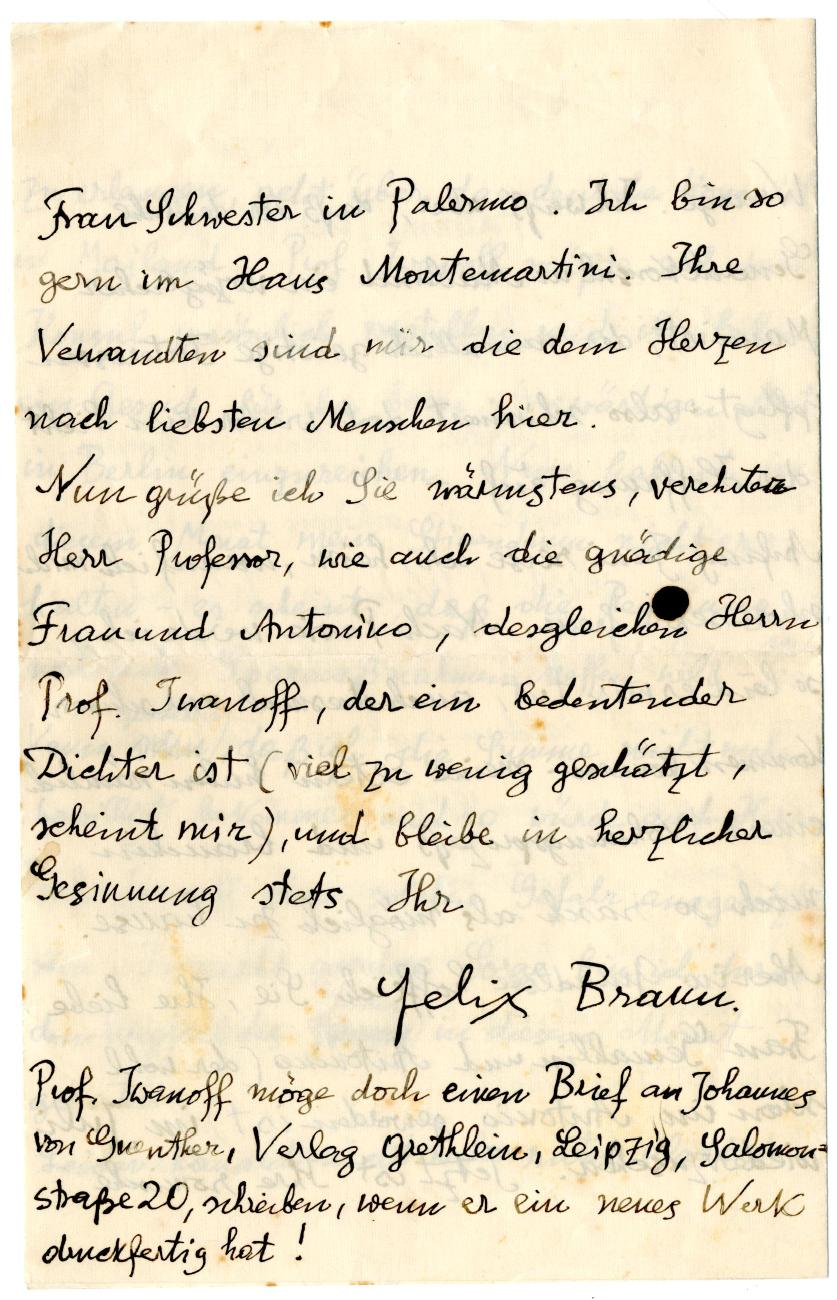 Frau Schwester in Palermo. Ich bin so
gern im Haus Montemartini. Ihre
Verwandten sind mir die dem Herzen
nach liebsten Menschen hier.
Nun grüße ich Sie wärmstens, verehrter
Herr Professor, wie auch die gnädige
Frau und Antonino, desgleichen Herrn
Prof. Iwanoff, der ein bedeutender
Dichter ist (viel zu wenig geschätzt,
scheint mir), und bleibe in herzlicher
Gesinnung stets Ihr
Felix Braun.
Prof. Iwanoff möge doch einen Brief an Johannes
von Guenther, Verlag Grethlein, Leipzig, Salomon=
straße 20, schreiben, wenn er ein neues Werk
druckfertig hat!